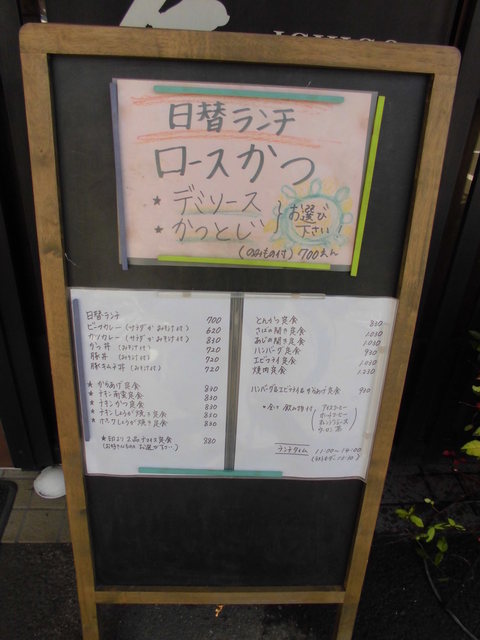 日替ランチ
ロースかつ
★ デミソース
★ かつとじ
お選び
下さい!
(のみもの付) 700えん
日替ランチ 700
ビーフカレー (サラダ かみそ汁付) 620
カツカレー (サラダ かみそ汁付) 830
かつ丼 (みそ汁付) 720
豚丼 (みそ汁付) 720
豚キムチ丼 (みそ汁付) 720
★ からあげ定食 830
★ チキン南蛮定食 830
★ チキンかつ定食 830
★ チキンしょうが焼き定食 830
★ ポークしょうが焼き定食 830
★印より2品チョイス定食 980
(お好きなもの お選び下さい)
とんかつ定食 830
さばの開き定食 1030
あじの開き定食 1030
ハンバーグ定食 930
エビフライ定食 1030
焼肉定食 1030
ハンバーグ&エビフライ&からあげ定食 980
全て飲み物付
アイスコーヒー
ホットコーヒー
オレンジジュース
ウーロン茶
ランチタイム 11:00~14:00